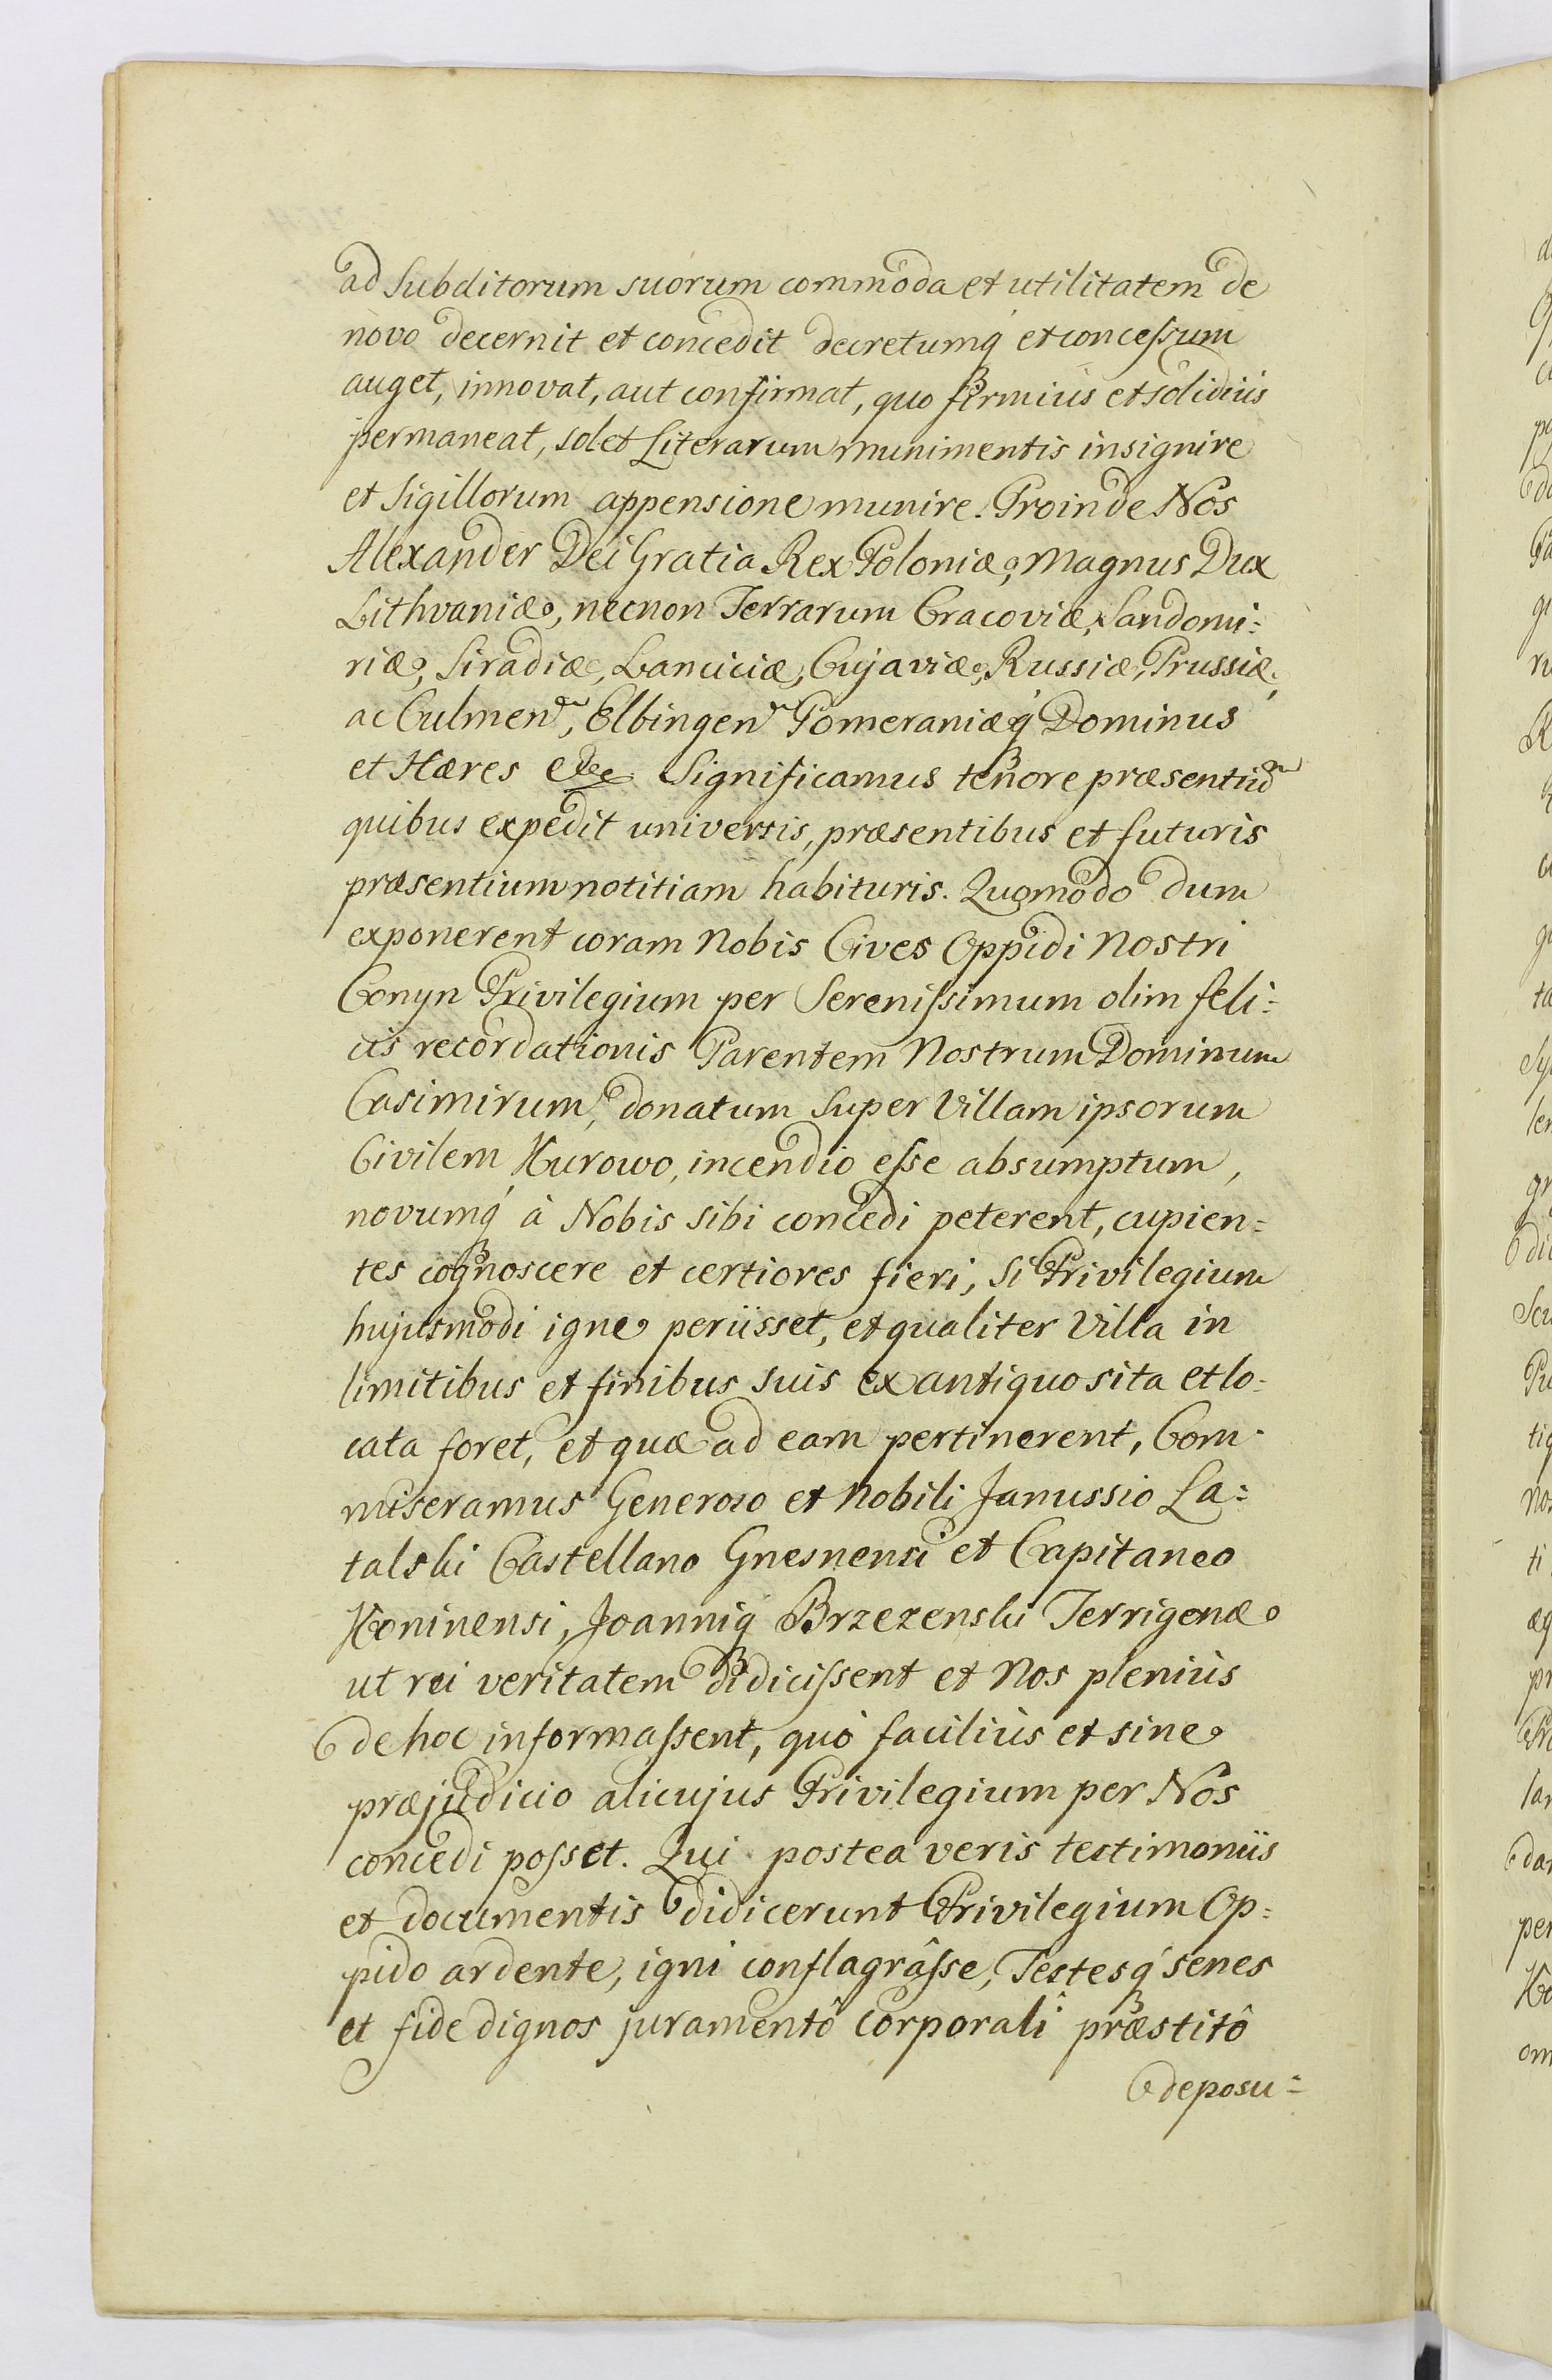 ad Subditorum suorum commoda et utilitatem de
novo decernit et concedit decretumq́ et conceſsum
auget, innovat, aut confirmat, quo firmiùs et solidiùs
permaneat, solet Literarum munimentis insignire
et Sigillorum appensione munire. Proinde Nos
Alexander Dei Gratia Rex Poloniæ, Magnus Dux
Lithvaniæ, necnon Terrarum Cracoviæ, Sandomi:
riæ, Siradiæ, Lanciciæ, Cujaviæ, Russiæ, Prussiæ,
ac Culmen, Elbingen Pomeraniæq́ Dominus
et Hæres &c Significamus tenore præsentiũ
quibus expedit universis, præsentibus et futuris
præsentium notitiam habituris. Quomodo dum
exponerent coram Nobis Cives Oppidi Nostri
Conyn Privilegium per Sereniſsimum olim feli:
cis recordationis Parentem Nostrum Dominum
Casimirum, donatum super Villam ipsorum
Civilem Kurowo, incendio eſse absumptum,
novumq́ à Nobis sibi concedi peterent, cupien:
tes cognoscere et certiores fieri, si Privilegium
hujusmodi igne periisset, et qualiter Villa in
limitibus et finibus suis ex antiquo sita et lo:
cata foret, et quæ ad eam pertinerent, Com:
miseramus Generoso et Nobili Janussio La:
talski Castellano Gnesnensi et Capitaneo
Koninensi, Joanniq́ Brzezenski Terrigenæ
ut rei veritatem didiciſsent et Nos pleniùs
de hoc informaſsent, quò faciliùs et sine
præjudicio alicujus Privilegium per Nos
concedi poſset. Qui postea veris testimoniis
et documentis didicerunt Privilegium Op:
pido ardente, igni conflagrâſse, Testesq́ senes
et fide dignos juramentô corporalî præstitô
deposu: